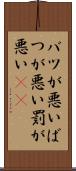 バツが悪いば
つが悪い罰が
悪い